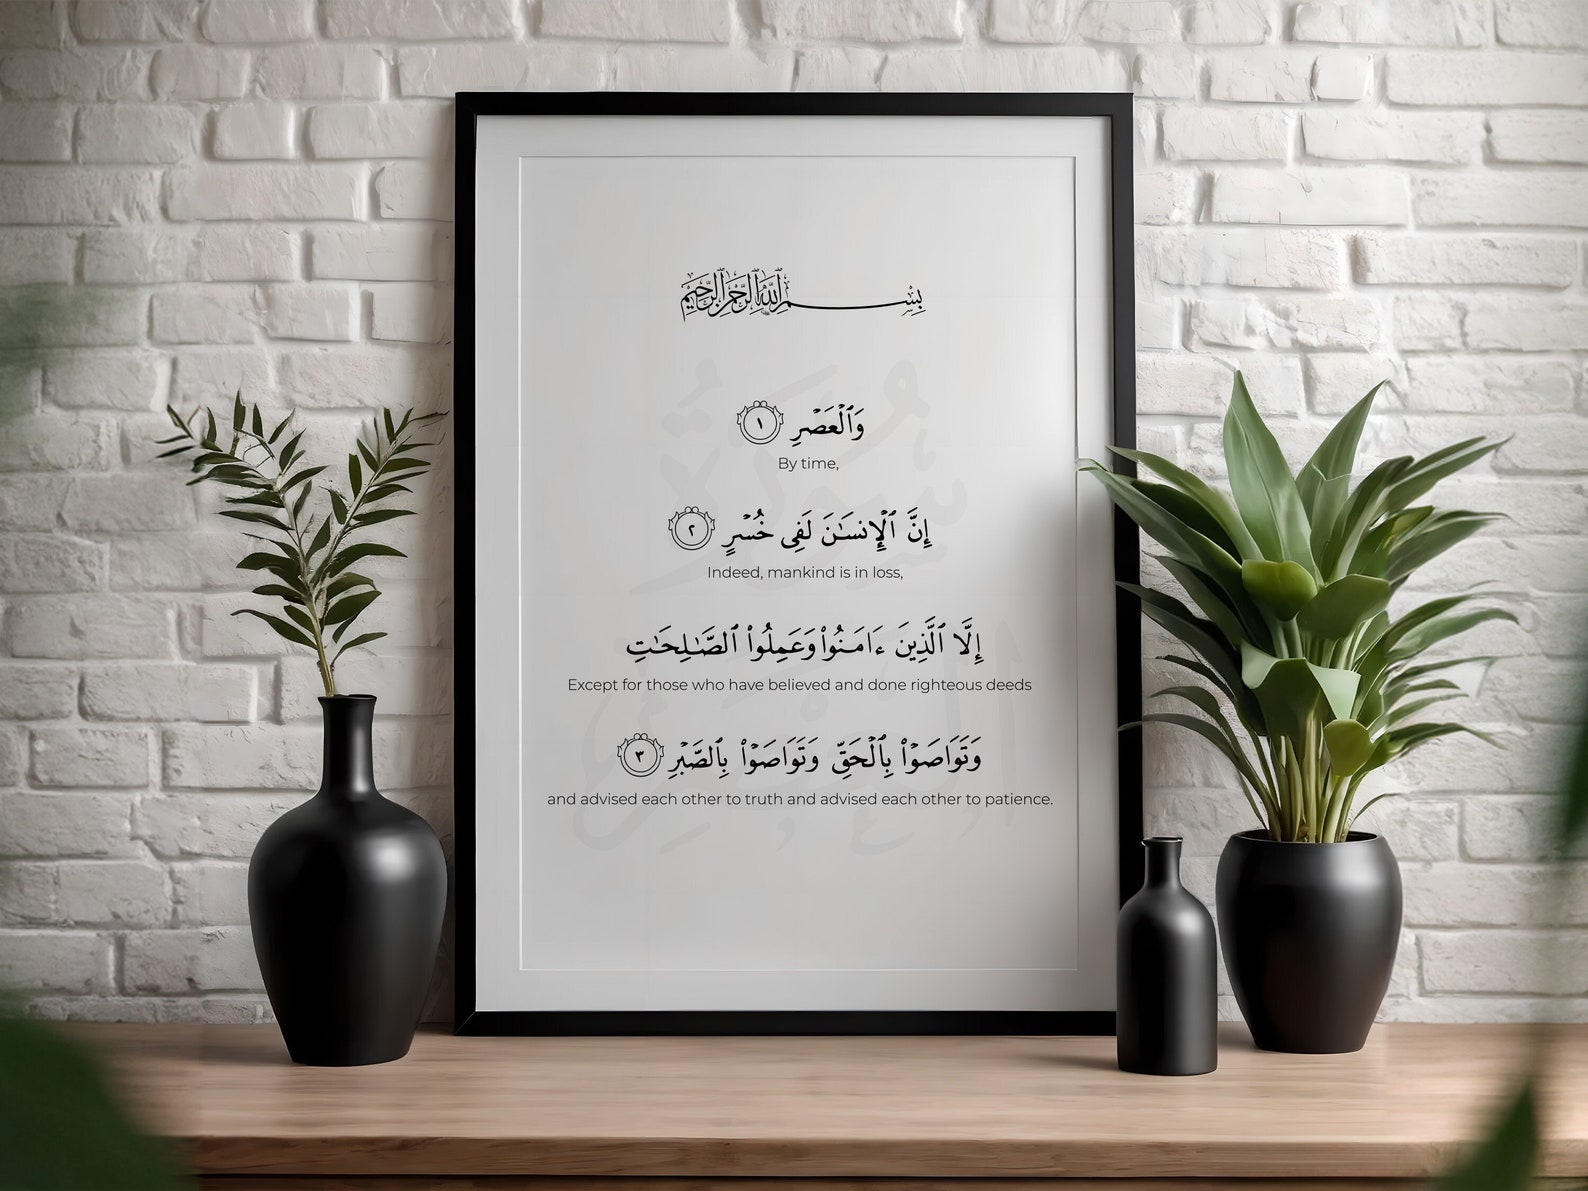 بِسْمِ ٱللَّهِ ٱلرَّحْمَٰنِ ٱلرَّحِيمِ
وَٱلْعَصْرِ ١
By time,
إِنَّ ٱلْإِنسَـٰنَ لَفِى خُسْرٍ ٢
Indeed, mankind is in loss,
إِلَّا ٱلَّذِينَ ءَامَنُوا۟ وَعَمِلُوا۟ ٱلصَّـٰلِحَـٰتِ
Except for those who have believed and done righteous deeds
وَتَوَاصَوْا۟ بِٱلْحَقِّ وَتَوَاصَوْا۟ بِٱلصَّبْرِ ٣
and advised each other to truth and advised each other to patience.
سُورَةُ
العَصْرِ